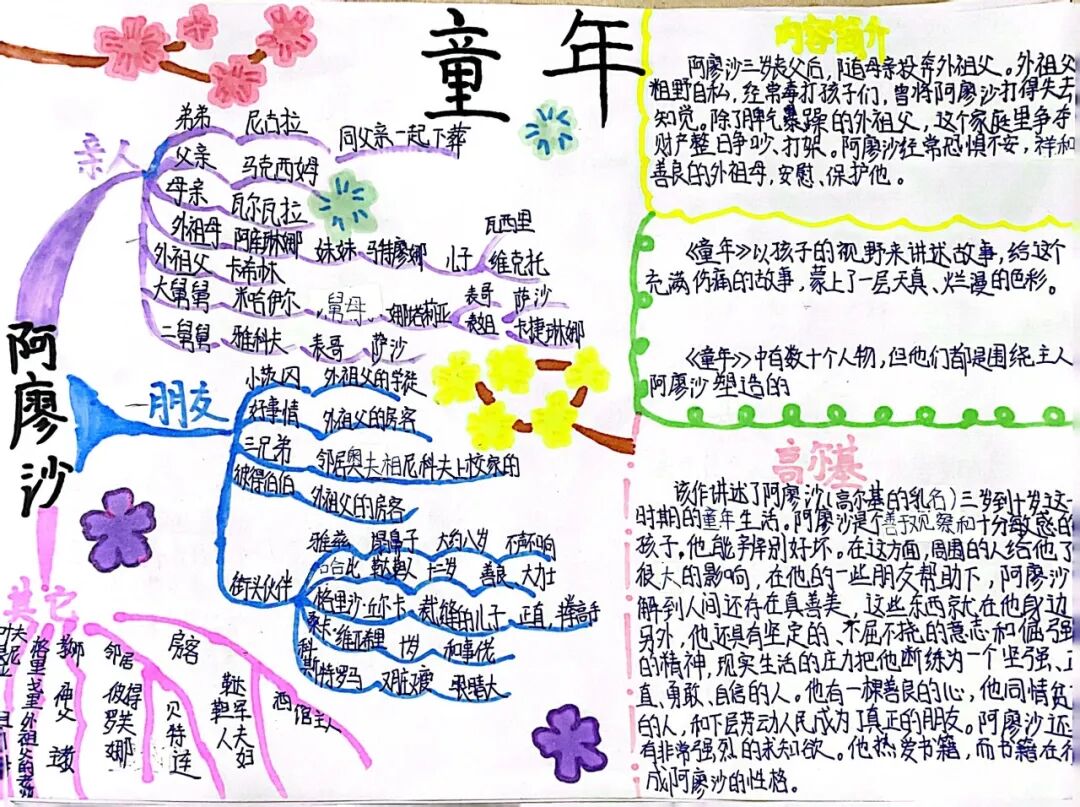 童年
阿廖沙
亲人
弟弟 尼古拉 同父亲一起下葬
父亲 马克西姆
母亲 瓦尔瓦拉
外祖母 阿库琳娜 妹妹 马特廖娜 儿子 瓦西里 维克托
外祖父 卡希林
大舅舅 米哈伊尔 舅母 娜塔莉亚 表哥 萨沙 表姐 卡捷琳娜
二舅舅 雅科夫 表哥 萨沙
朋友
小茨冈 外祖父的学徒
好事情 外祖父的房客
三兄弟 邻居奥夫相尼科夫上校家的
彼得伯伯 外祖父的房客
街头伙伴
雅兹 塌鼻子 大约八岁 不声不响
哈比 鞑靼人 十二岁 善良、大力士
格里沙·丘尔卡 裁缝的儿子 正直 拳高手
维亚希里 十岁 和事佬
科斯特罗马
其它
格里戈里 外祖父的
神父
邻居 彼得罗芙娜
房客 贝特连
鞑靼人 军人夫妇
酒馆主人
内容简介
阿廖沙三岁丧父后，随母亲投奔外祖父。外祖父
粗野自私，经常毒打孩子们，曾将阿廖沙打得失去
知觉。除了脾气暴躁的外祖父，这个家庭里争夺
财产整日争吵、打架。阿廖沙经常恐惧不安，祥和
善良的外祖母，安慰、保护他。
《童年》以孩子的视野来讲述故事，给这个
充满伤痛的故事，蒙上了一层天真、烂漫的色彩。
《童年》中有数十个人物，但他们都是围绕主人
阿廖沙塑造的
高尔基
该作讲述了阿廖沙(高尔基的乳名)三岁到十岁这一
时期的童年生活。阿廖沙是个善于观察和十分敏感的
孩子，他能辨别好坏。在这方面，周围的人给他了
很大的影响，在他的一些朋友帮助下，阿廖沙
解到人间还存在真善美，这些东西就在他身边
另外，他还具有坚定的、不屈不挠的意志和倔强
的精神，现实生活的压力把他断练为一个坚强、正
直、勇敢、自信的人。他有一棵善良的心，他同情贫
的人，和下层劳动人民成为了真正的朋友。阿廖沙还
有非常强烈的求知欲。他热爱书籍，而书籍在
成阿廖沙的性格。